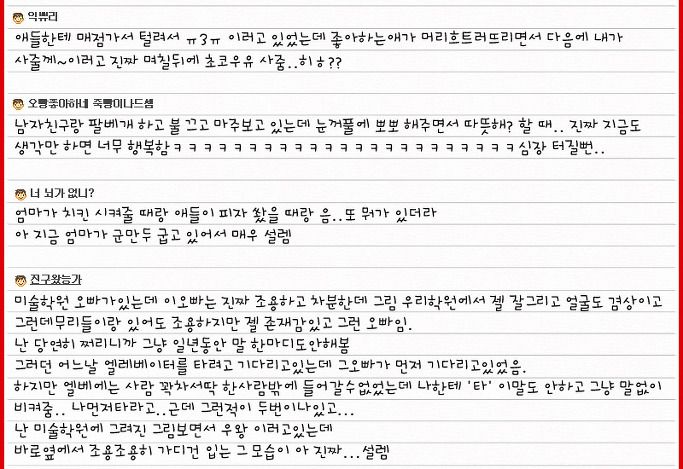 익쀼리
애들한테 매점가서 털려서 ㅠ3ㅠ 이러고 있었는데 좋아하는애가 머리흐트러뜨리면서 다음에 내가
사줄께~이러고 진짜 며칠뒤에 초코우유 사줌..히ㅎ??
오빵좋아하네 죽빵이나드셈
남자친구랑 팔베개 하고 불 끄고 마주보고 있는데 눈꺼풀에 뽀뽀 해주면서 따뜻해? 할 때.. 진짜 지금도
생각만 하면 너무 행복함ㅋㅋㅋㅋㅋㅋㅋㅋㅋㅋㅋㅋㅋㅋㅋㅋㅋㅋㅋㅋㅋㅋㅋ심장 터질뻔..
너 뇌가 없니?
엄마가 치킨 시켜줄 때랑 애들이 피자 쐈을 때랑 음..또 뭐가 있더라
아 지금 엄마가 군만두 굽고 있어서 매우 설렘
진구왔능가
미술학원 오빠가있는데 이오빠는 진짜 조용하고 차분한데 그림 우리학원에서 젤 잘그리고 얼굴도 겸상이고
그런데무리들이랑 있어도 조용하지만 젤 존재감있고 그런 오빠임.
난 당연히 쩌리니까 그냥 일년동안 말 한마디도안해봄
그러던 어느날 엘레베이터를 타려고 기다리고있는데 그오빠가 먼저 기다리고있었음.
하지만 엘베에는 사람 꽉차서딱 한사람밖에 들어갈수없었는데 나한테 '타' 이말도 안하고 그냥 말없이
비켜줌.. 나먼저타라고..근데 그런적이 두번이나있고...
난 미술학원에 그려진 그림보면서 우왕 이러고있는데
바로옆에서 조용조용히 가디건 입는 그 모습이 아 진짜...설렘